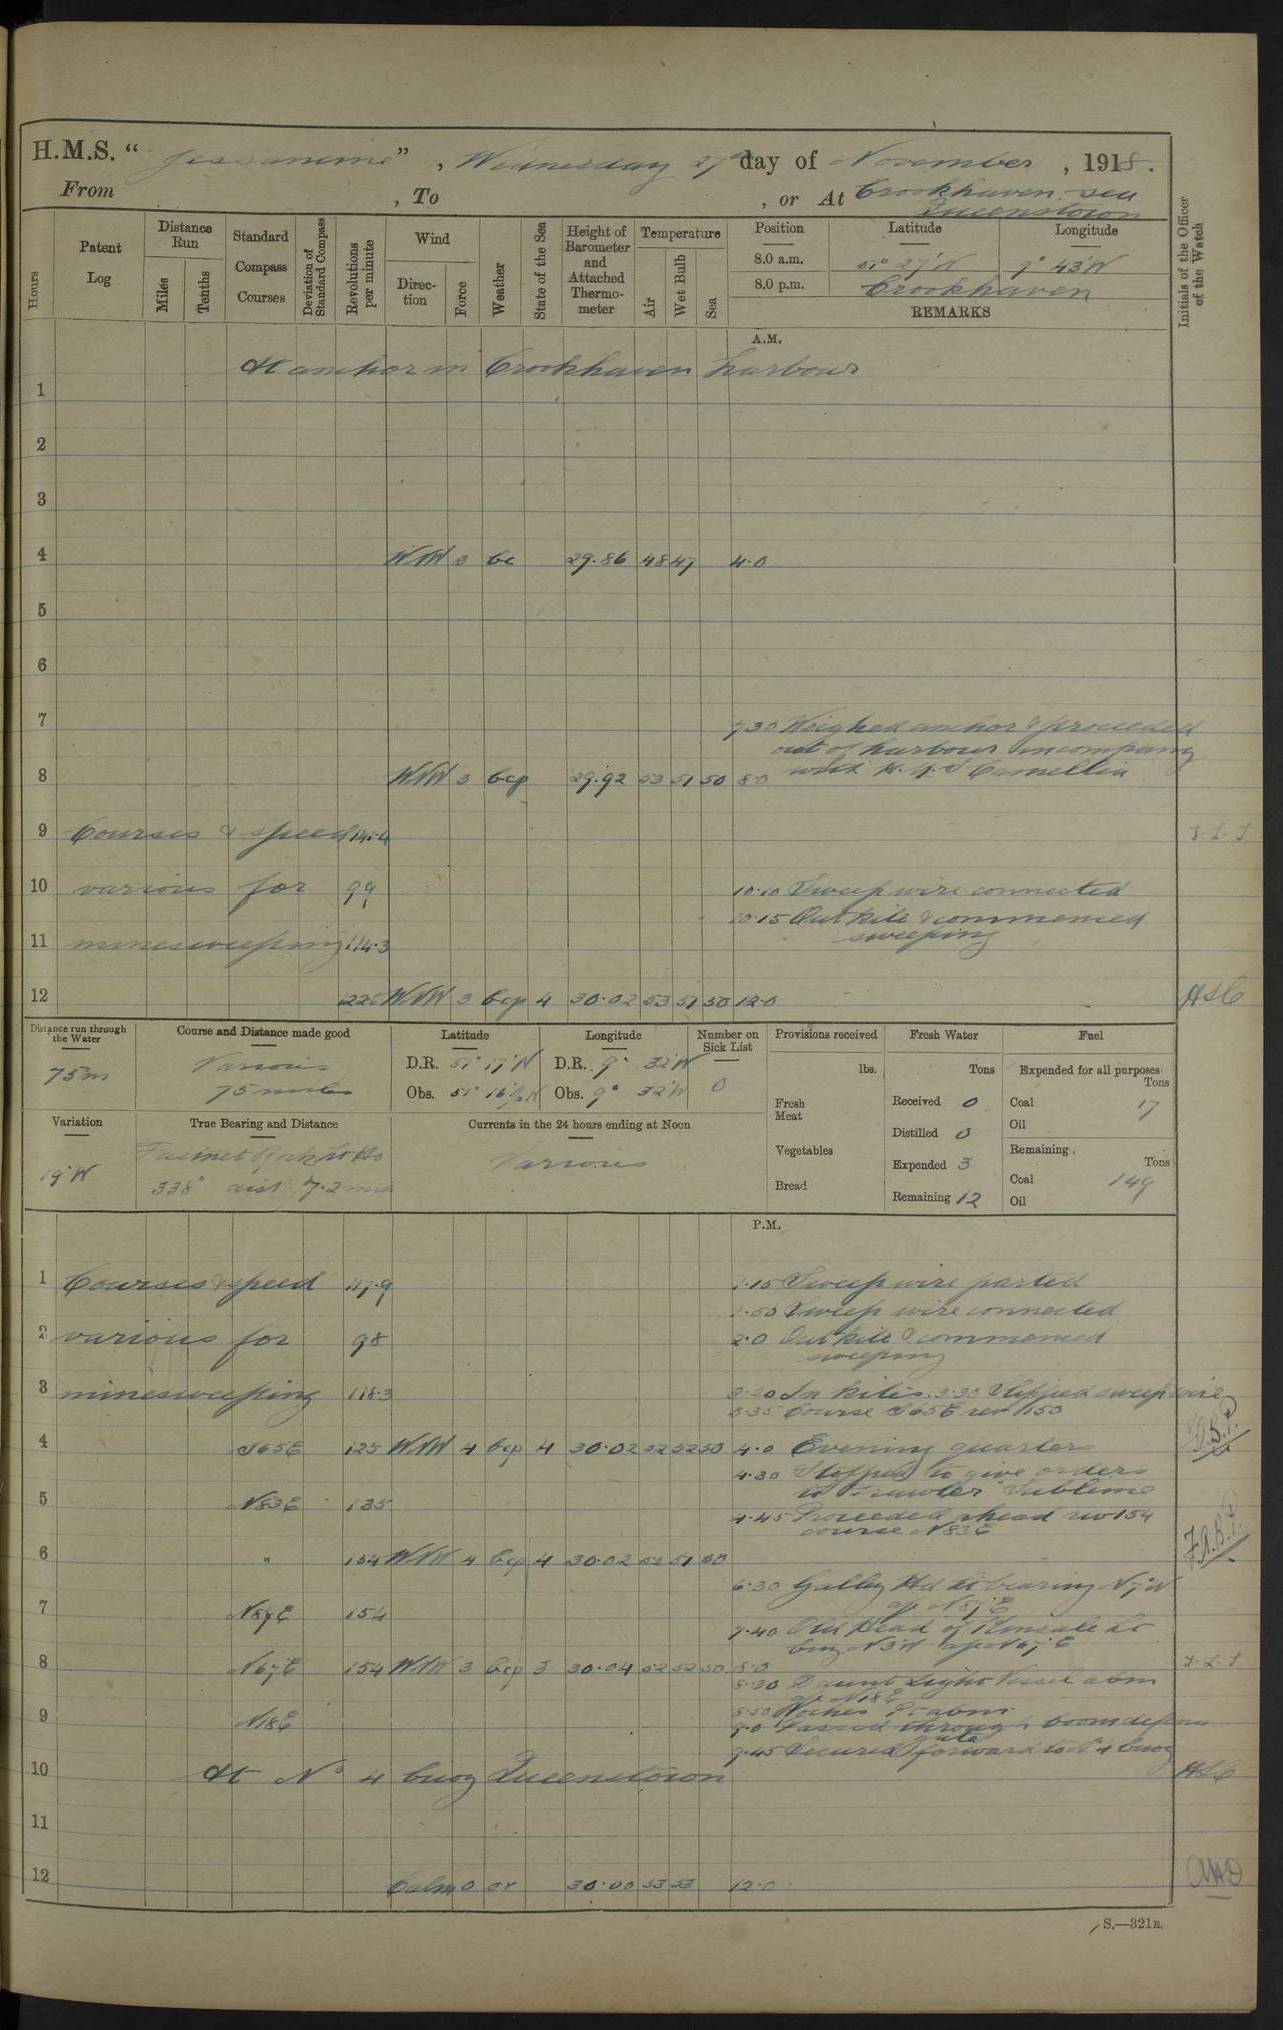 H.M.S. "Jessamine", Wednesday 27th day of November, 1918.
From , To , or At Crookhaven, sea
Queenstown
Hours
Patent Log
Distance Run
Miles
Tenths
Standard Compass Courses
Deviation of Standard Compass
Revolutions per minute
Wind
Direction
Force
Weather
State of the Sea
Height of Barometer and Attached Thermometer
Temperature
Air
Wet Bulb
Sea
Position Latitude Longitude
8.0 a.m. 51° 27'N 9° 43'W
8.0 p.m. Crookhaven
REMARKS
Initials of the Officer of the Watch
A.M.
At anchor in Crookhaven harbour
1
2
3
4 WNW 3 bc 29.86 48 47 4.0
5
6
7
7.30 Weighed anchor & proceeded
out of harbour in company
with H.M.S Camellia
8 WNW 3 bcp 29.92 53 51 50 8.0
9 Courses & speed 141.4 J.L.J
10 various for 99 10.10 Sweep wire connected
10.15 Out kite & commenced
sweeping
11 minesweeping 114.3
12 122 WNW 3 bcp 4 30.02 53 51 50 12.0
Distance run through the Water
75m
Course and Distance made good
Various
75 miles
Latitude
D.R. 51° 17'N
Obs. 51° 16½N
Longitude
D.R. 9° 32'W
Obs. 9° 32'W
Number on Sick List
0
Provisions received
lbs.
Fresh Meat
Vegetables
Bread
Fresh Water
Tons
Received 0
Distilled 0
Expended 3
Remaining 12
Fuel
Expended for all purposes
Tons
Coal 17
Oil
Remaining.
Tons
Coal 149
Oil
Variation
19°W
True Bearing and Distance
Fastnet Rock Lt Ho
338° dist 7.2 miles
Currents in the 24 hours ending at Noon
Various
P.M.
1 Courses & speed 117.9 1.15 Sweep wire parted
1.50 Sweep wire connected
2 various for 98 2.0 Out kite & commenced
sweeping
3 minesweeping 118.3 3.20 In kites. 3.30 Slipped sweep wire
3.35 Course S65E rev 150
4 S65E 125 WNW 4 bcp 4 30.02 52 52 50 4.0 Evening quarters
4.30 Stopped to give orders
to Trawler "Sublime
5 N83E 135 4.45 Proceeded ahead rev 154
course N83E
6 " 154 WNW 4 bcp 4 30.02 52 51 50 F.A.B.P.
6.30 Galley Hd Lt bearing N7°W
a/c N87°E
7 N87E 154
7.40 Old Head of Kinsale Lt
brng N3°W a/c N67°E
8 N67°E 154 WNW 3 bcp 3 30.04 52 52 50 8.0 J.L.J
8.30 Daunt Light Vessel abm
a/c N18E
8.50 Roches Pt abm
9 N18E 9.0 Passed through boom defence
gate
9.45 Secured forward to No 4 buoy
10 At No 4 buoy Queenstown
11
12 Calm 0 or 30.00 53 53 12.0
S.—321B.